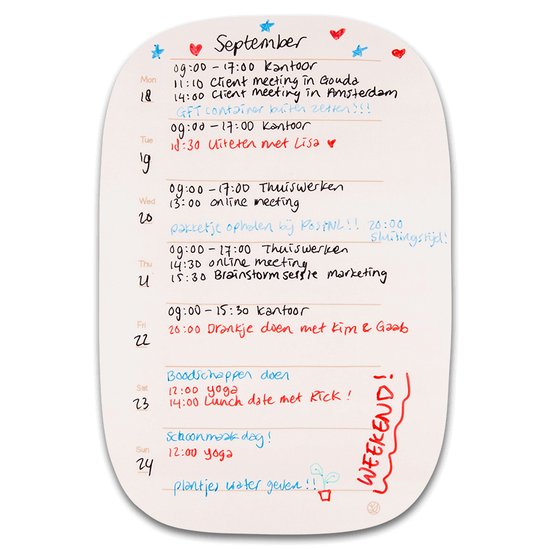 September
Mon
18
09:00 - 17:00 Kantoor
11:10 Client meeting in Gouda
14:00 Client meeting in Amsterdam
GFT container buiten zetten!!!
Tue
19
09:00 - 17:00 Kantoor
18:30 Uiteten met Lisa
Wed
20
09:00 - 17:00 Thuiswerken
13:00 online meeting
pakketje ophalen bij PostNL!! 20:00
Sluitingstijd!
Thu
21
09:00 - 17:00 Thuiswerken
14:30 online meeting
15:30 Brainstormsessie marketing
Fri
22
09:00 - 15:30 Kantoor
20:00 Drankje doen met Kim & Gaab
Sat
23
Boodschappen doen
12:00 yoga
14:00 Lunch date met Rick!
Sun
24
Schoonmaakdag!
12:00 yoga
plantjes water geven!!
WEEKEND!